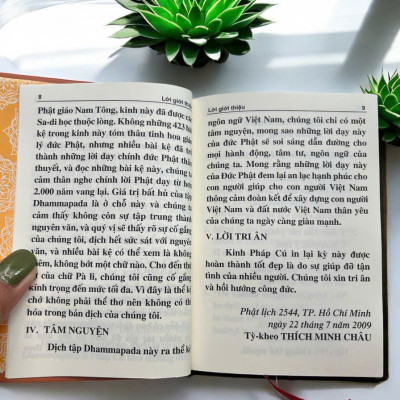 8
Lời giới thiệu
Phật giáo Nam Tông, kinh này đã được các
Sa-di học thuộc lòng. Không những 423 bài
kệ trong kinh này tóm thâu tinh hoa giáo
lý đức Phật, nhưng nhiều bài kệ đã trở
thành những lời dạy chính đức Phật thân
thuyết, và đọc những bài kệ này, chúng ta
cảm thân nghe chính lời Phật dạy từ hơn
2.000 năm vang lại. Giá trị bất hủ của tập
Dhammapada là ở chỗ này và chúng ta
cảm thấy không còn sự tập trung thành
nguyên văn, và quý vị sẽ thấy rõ sự cố gắng
của chúng tôi, dịch hết sức sát với nguyên
văn, và nhiều bài kệ có thể xem là không
thêm, không bớt một chữ nào. Cho đến thứ
tự của chữ Pà li, chúng tôi cũng cố gắng
kính trọng đến mức tối đa. Vì đây là thể kệ
chớ không phải thể thơ nên không có thi
hóa trong bản dịch của chúng tôi.
IV. TÂM NGUYỆN
Dịch tập Dhammapada này ra thể kệ
Lời giới thiệu
9
ngôn ngữ Việt Nam, chúng tôi chỉ có một
tâm nguyện, mong sao những lời dạy này
của đức Phật sẽ soi sáng dẫn đường cho
mọi hành động, tâm tư, ngôn ngữ của
chúng ta. Mong rằng những lời dạy này
của Đức Phật đem lại an lạc hạnh phúc cho
con người giúp cho con người Việt Nam
thông cảm đoàn kết để xây dựng con người
Việt Nam và đất nước Việt Nam thân yêu
của chúng ta ngày càng giàu mạnh.
V. LỜI TRI ÂN
Kinh Pháp Cú in lại kỳ này được
hoàn thành tốt đẹp là do sự giúp đỡ tận
tình của nhiều người. Chúng tôi xin tri ân
và hồi hướng công đức.
Phật lịch 2544, TP. Hồ Chí Minh
ngày 22 tháng 7 năm 2009
Tỳ-kheo THÍCH MINH CHÂU